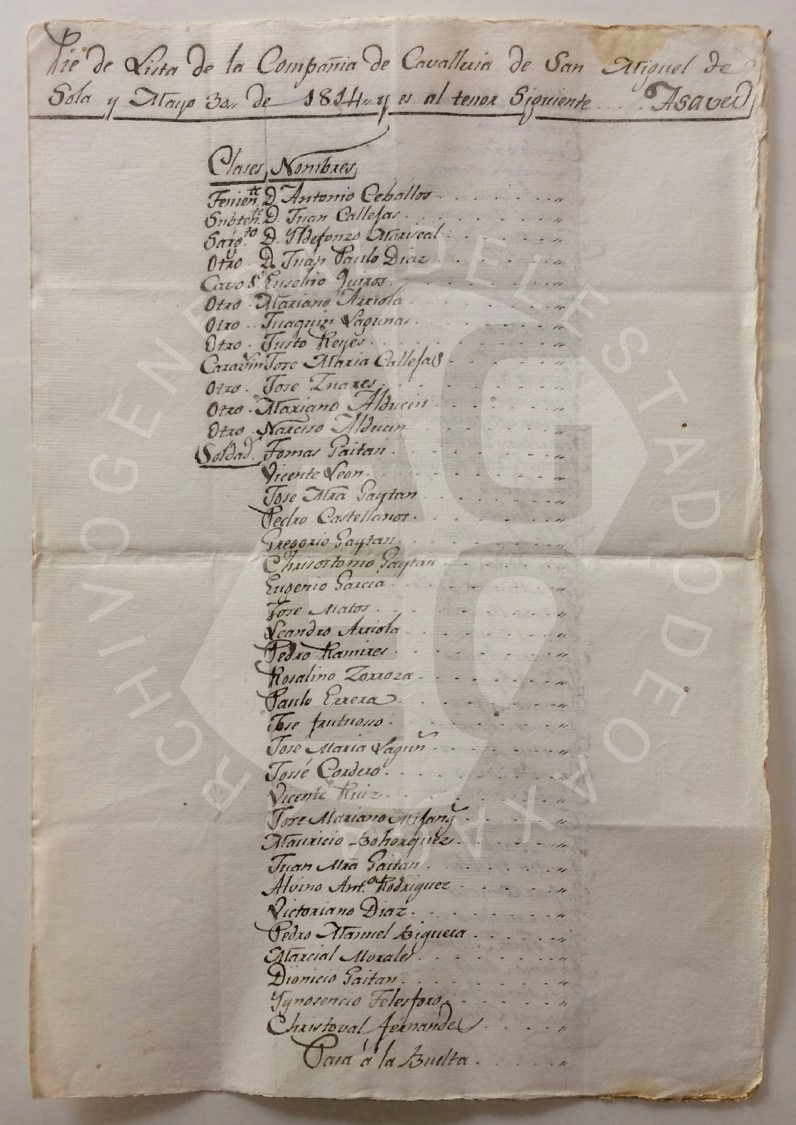 Pie de Lista de la Compañia de Cavalleria de San Miguel de
Sola y Mayo 30,, de 1814,, y es al tenor Siguiente .... Asaver
Clases, Nombres,
Tenien.te D. Antonio Ceballos
Subten.te D. Juan Callejas
Sarg.to D. Yldefonzo Mariscal
Otro. D. Juan Paulo Diaz
Cavo S.s Eusebio Quiros
Otro. Mariano Arriola
Otro. Juaquin Lagunas
Otro. Justo Reyes
Caravin Jose Maria Callejas
Otro. Jose Zuares
Otro. Mariano Alducin
Otro. Narciso Alducin
Soldad.s Tomas Gaitan
Vicente Leon
Jose Mrã Gaytan
Pedro Castellanos
Gregorio Gaytan
Chrisostomo Gaytan
Eugenio Garcia
Jose Matos
Leandro Arriola
Pedro Ramires
Rosalino Zorroza
Paulo Errera
Jose frutuoso
Jose Maria Lagun.s
Jossé Cordero
Vicente Ruiz
Jose Mariano Mijang.s
Mauricio Bohorquez
Juan Mrã Gaitan
Alvino Ant.o Rodriguez
Victoriano Diaz
Pedro Manuel Bigueria
Marcial Morales
Dionicio Gaitan
Ygnosencio Telesforo
Christoval fernandes
Pasa á la Buelta
ARCHIVO GENERAL DEL ESTADO DE OAXACA